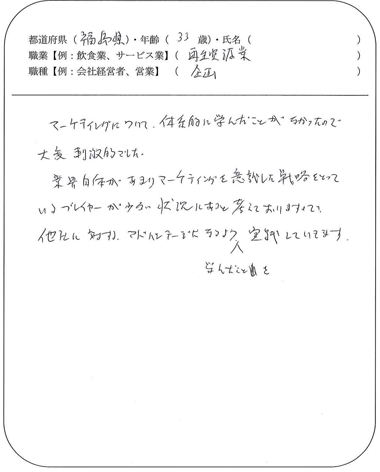 都道府県（福島県）・年齢（ 33 歳）・氏名（　　　）
職業【例：飲食業、サービス業】（ 再生資源業 ）
職種【例：会社経営者、営業】（ 企画 ）
マーケティングについて、体系的に学んだことがなかったので
大変刺激的でした。
業界自体があまりマーケティングを意識した戦略をとって
いるプレイヤーが少ない状況にあると考えておりますので、
他社に対する、アドバンテージになるよう、実践していきます。
学んだことを